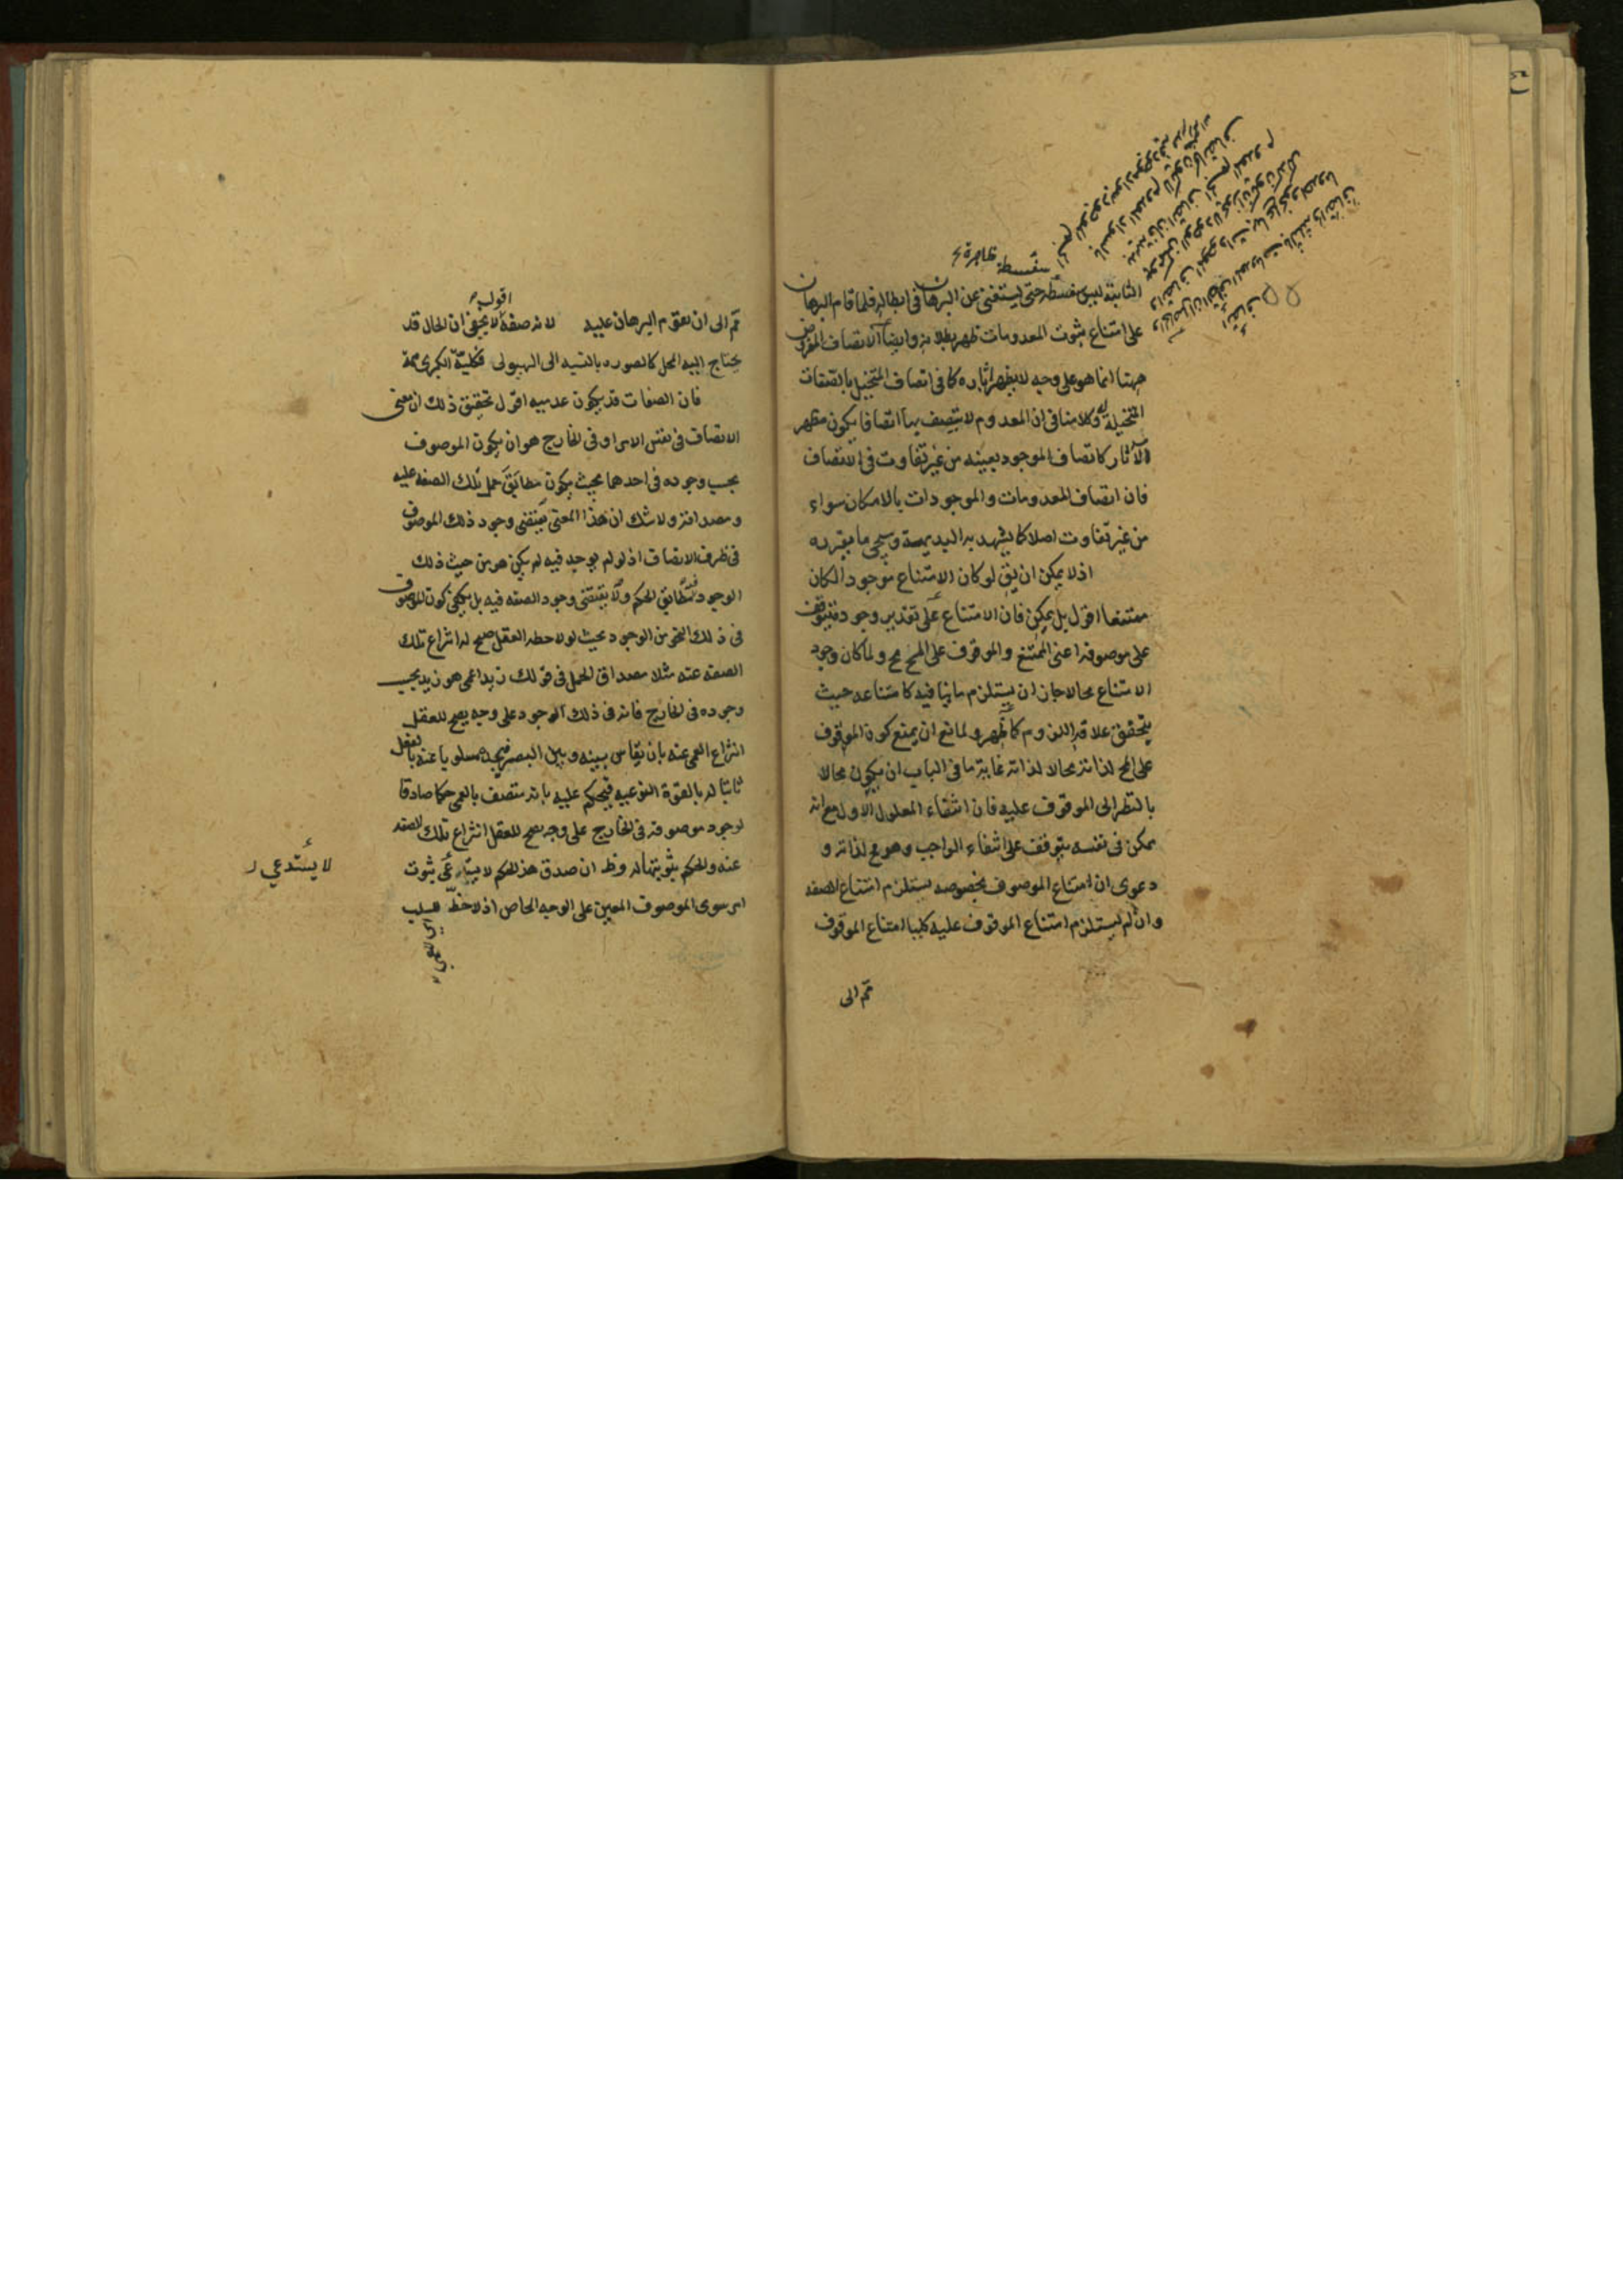 سفسطة ظاهرة
الثابتة ليس سفسطة حتى يستغنى عن البرهان فى ابطاله فلما قام البرهان
على امتناع ثبوت المعدومات ظهر بطلانه وايضا الاتصاف المفروض
ههنا انما هو على وجه لا يظهر آثاره كما فى اتصاف المتخيل بالصفات
المتخيلة وكلامنا فى ان المعدوم لا يتصف بها اتصافا يكون مظهر
الآثار كاتصاف الموجود بعينه من غير تفاوت فى الاتصاف
فان اتصاف المعدومات والموجودات بالامكان سواء
من غير تفاوت اصلا كما يشهد به البديهة وسيجى ما يقرره
اذ لا يمكن ان يق لو كان الامتناع موجود الكان
ممتنعا اقول بل يمكن فان الامتناع على تقدير وجوده يتوقف
على موصوفه اعنى الممتنع والموقوف على المح مح ولما كان وجود
الامتناع محالا جاز ان يستلزم ما ينافيه كامتناعه حيث
يتحقق علاقة اللزوم كما ظهر ولمانع ان يمنع كون الموقوف
على المح لذاته محالا لذاته غاية ما فى الباب ان يكون محالا
بالنظر الى الموقوف عليه فان انتفاء المعلول الاول مع انه
ممكن فى نفسه يتوقف على انتفاء الواجب وهو مح لذاته و
دعوى ان امتناع الموصوف بخصوصه يستلزم امتناع الصفه
وان لم يستلزم امتناع الموقوف عليه كليا امتناع الموقوف
ثم الى
اقول
ثم الى ان يقوم البرهان عليه لانه صفة لا يخفى ان الحال قد
يحتاج اليه المحل كالصوره بالنسبه الى الهيولى فكلية الكبرى مم
فان الصفات قد يكون عدميه اقول تحقيق ذلك ان معنى
الاتصاف فى نفس الامر او فى الخارج هو ان يكون الموصوف
بحسب وجوده فى احدهما بحيث يكون مطابق حمل تلك الصفه عليه
ومصداقه ولا شك ان هذا المعنى يقتضى وجود ذلك الموصوف
فى ظرف الاتصاف اذ لو لم يوجد فيه لم يكن هو من حيث ذلك
الوجود مطابق الحكم ولا يقتضى وجود الصفه فيه بل يكفى كون الموصوف
فى ذلك النحو من الوجود بحيث لو لاحظه العقل صح له انتزاع تلك
الصفه عنه مثلا مصداق الحمل فى قولك زيد اعمى هو زيد بحسب
وجوده فى الخارج فانه فى ذلك الوجود على وجه يصح للعقل
انتزاع العمى عنه بان يقاس بينه وبين البصر فيجده مسلوبا عنه بالفعل
ثابتا له بالقوة النوعيه فيحكم عليه بانه متصف بالعمى حكما صادقا
لوجود موصوفه فى الخارج على وجه يصح للعقل انتزاع تلك الصفه
عنه والحكم بثبوتها له وظ ان صدق هذا الحكم ثبوت
امر سوى الموصوف المعين على الوجه الخاص اذ لاحظ للسلب
لا يستدعي